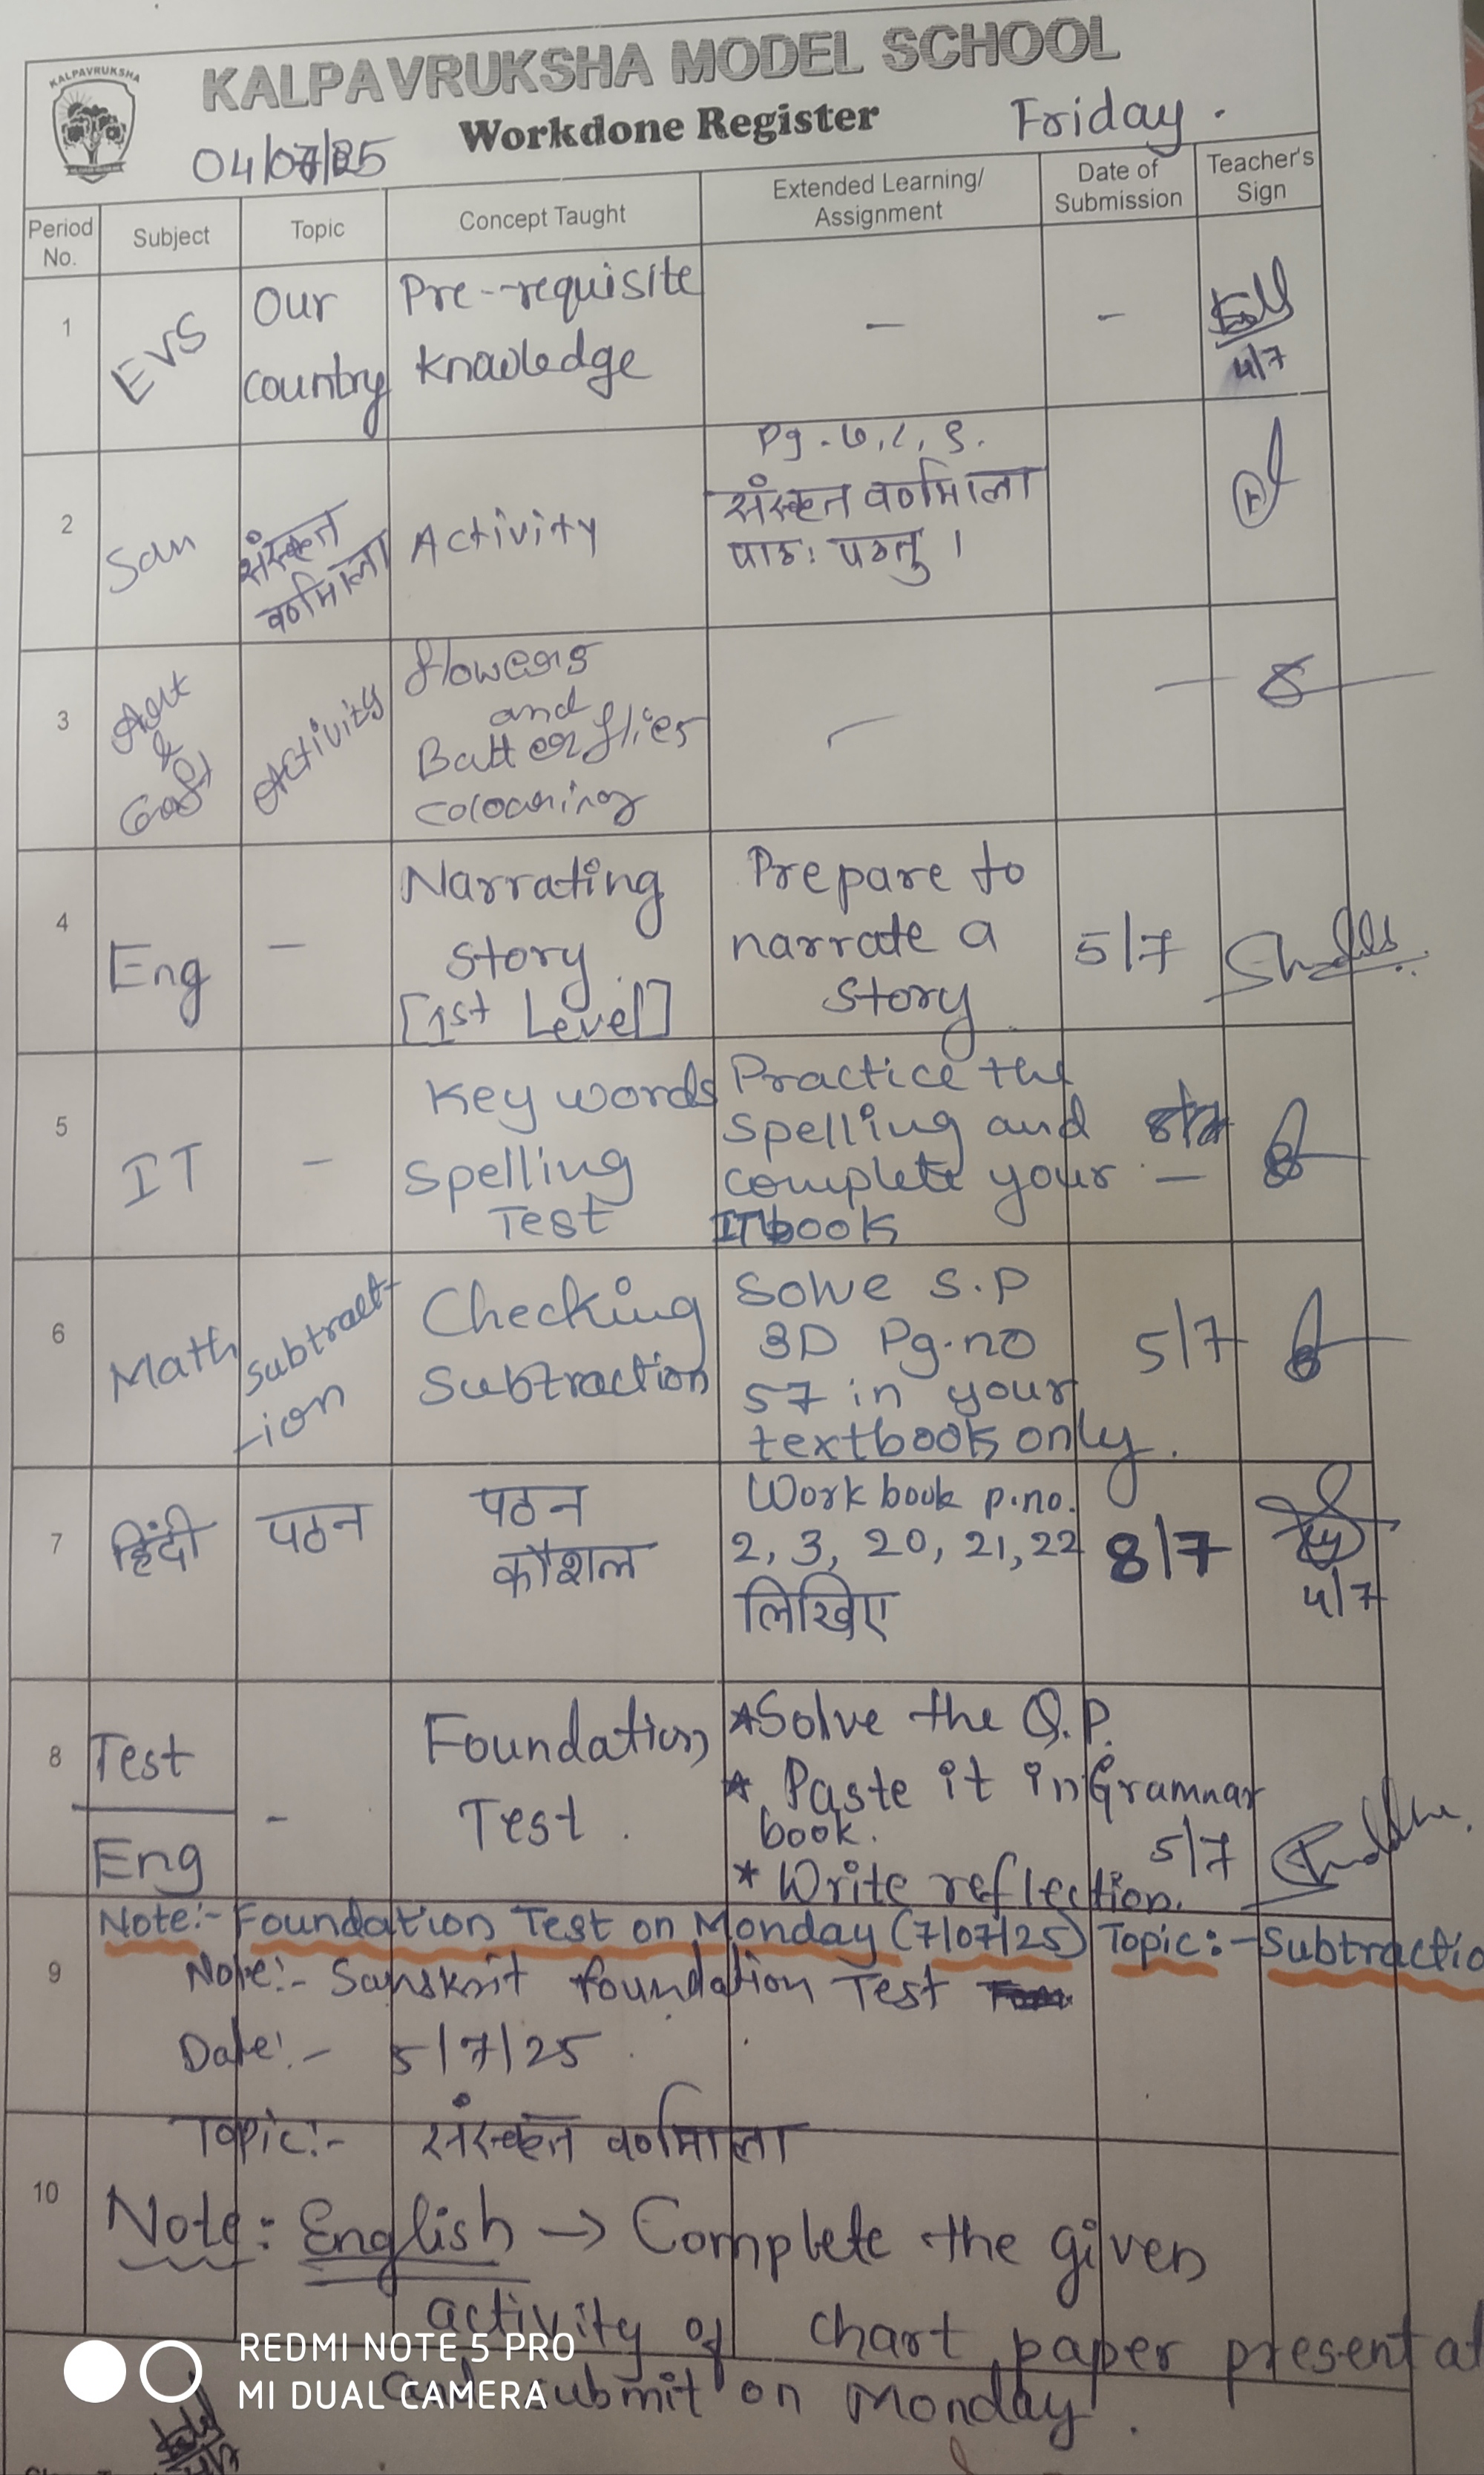 KALPAVRUKSHA
KALPAVRUKSHA MODEL SCHOOL
Workdone Register
04/07/25
Friday.
Period No.
Subject
Topic
Concept Taught
Extended Learning/
Assignment
Date of
Submission
Teacher's
Sign
1
EVS
Our
country
Pre--requisite
knowledge
-
-
4/7
2
San
संस्कृत
वर्णमाला
Activity
Pg - ७, ८, ९.
संस्कृत वर्णमाला
पाठः पठतु ।
3
Art
&
Craft
Activity
flowers
and
Butterflies
colouring
-
-
4
Eng
-
Narrating
story.
[1st Level]
Prepare to
narrate a
story.
5/7
5
IT
-
Key words
Spelling
Test
Practice the
Spelling and
complete your
IT book
-
6
Math
subtract-
-ion
Checking
Subtraction
Solve S.P
3D Pg.no
57 in your
textbook only.
5/7
7
हिंदी
पठन
पठन
कौशल
Work book p.no.
2, 3, 20, 21, 22
लिखिए
8/7
4/7
8
Test
Eng
-
Foundation
Test.
*Solve the Q.P.
* Paste it in Grammar
book.
* Write reflection.
5/7
9
Note:- Foundation Test on Monday (7/07/25) Topic:- Subtractio
Note:- Sanskrit foundation Test
Date:- 5/7/25
Topic:- संस्कृत वर्णमाला
10
Note: English → Complete the given
activity of chart paper present at
and submit on Monday.
REDMI NOTE 5 PRO
MI DUAL CAMERA